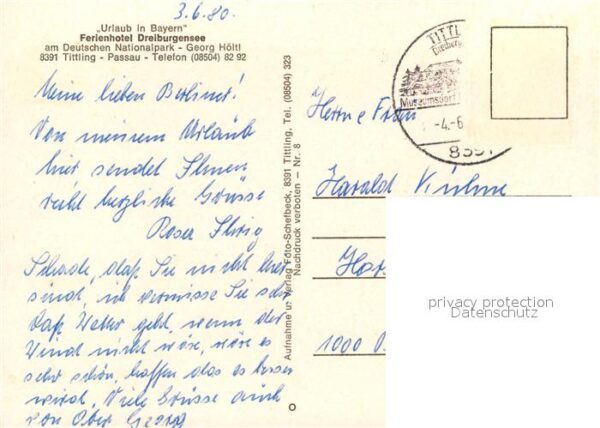 3.6.80.
„Urlaub in Bayern"
Ferienhotel Dreiburgensee
am Deutschen Nationalpark - Georg Höltl
8391 Tittling - Passau - Telefon (08504) 82 92
Meine lieben Berliner!
Von meinem Urlaub
hier sendet Ihnen
recht herzliche Grüsse
Rosa
Schade, daß Sie nicht hier
sind, ich vermisse Sie sehr
Das Wetter geht, wenn der
Wind nicht wäre, wäre es
sehr schön, hoffen das es besser
wird. Viele Grüsse auch
von Ober Georg
Aufnahme u. Verlag Foto-Schefbeck, 8391 Tittling, Tel. (08504) 323
Nachdruck verboten - Nr. 8
TITTL
Dreiburg
Museumsdorf
-4.-6
8391
Herrn & Frau
Harald Kühne
1000
privacy protection
Datenschutz